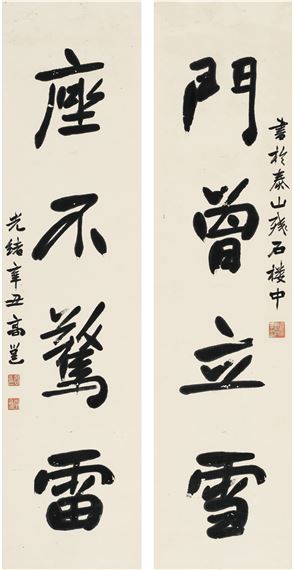 門曾立雪
書於泰山殘石樓中
座不驚雷
光緒辛丑高邕